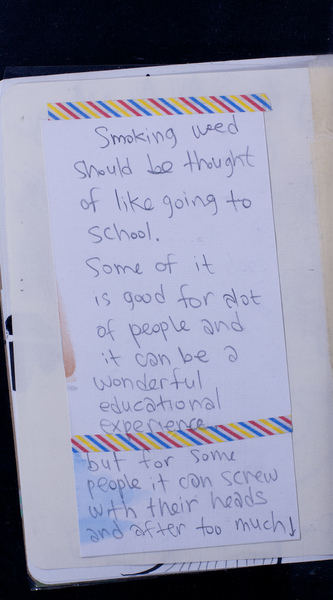 Smoking weed
should be thought
of like going to
school.
Some of it
is good for alot
of people and
it can be a
wonderful
educational
experience
but for some
people it can screw
with their heads
and after too much↓